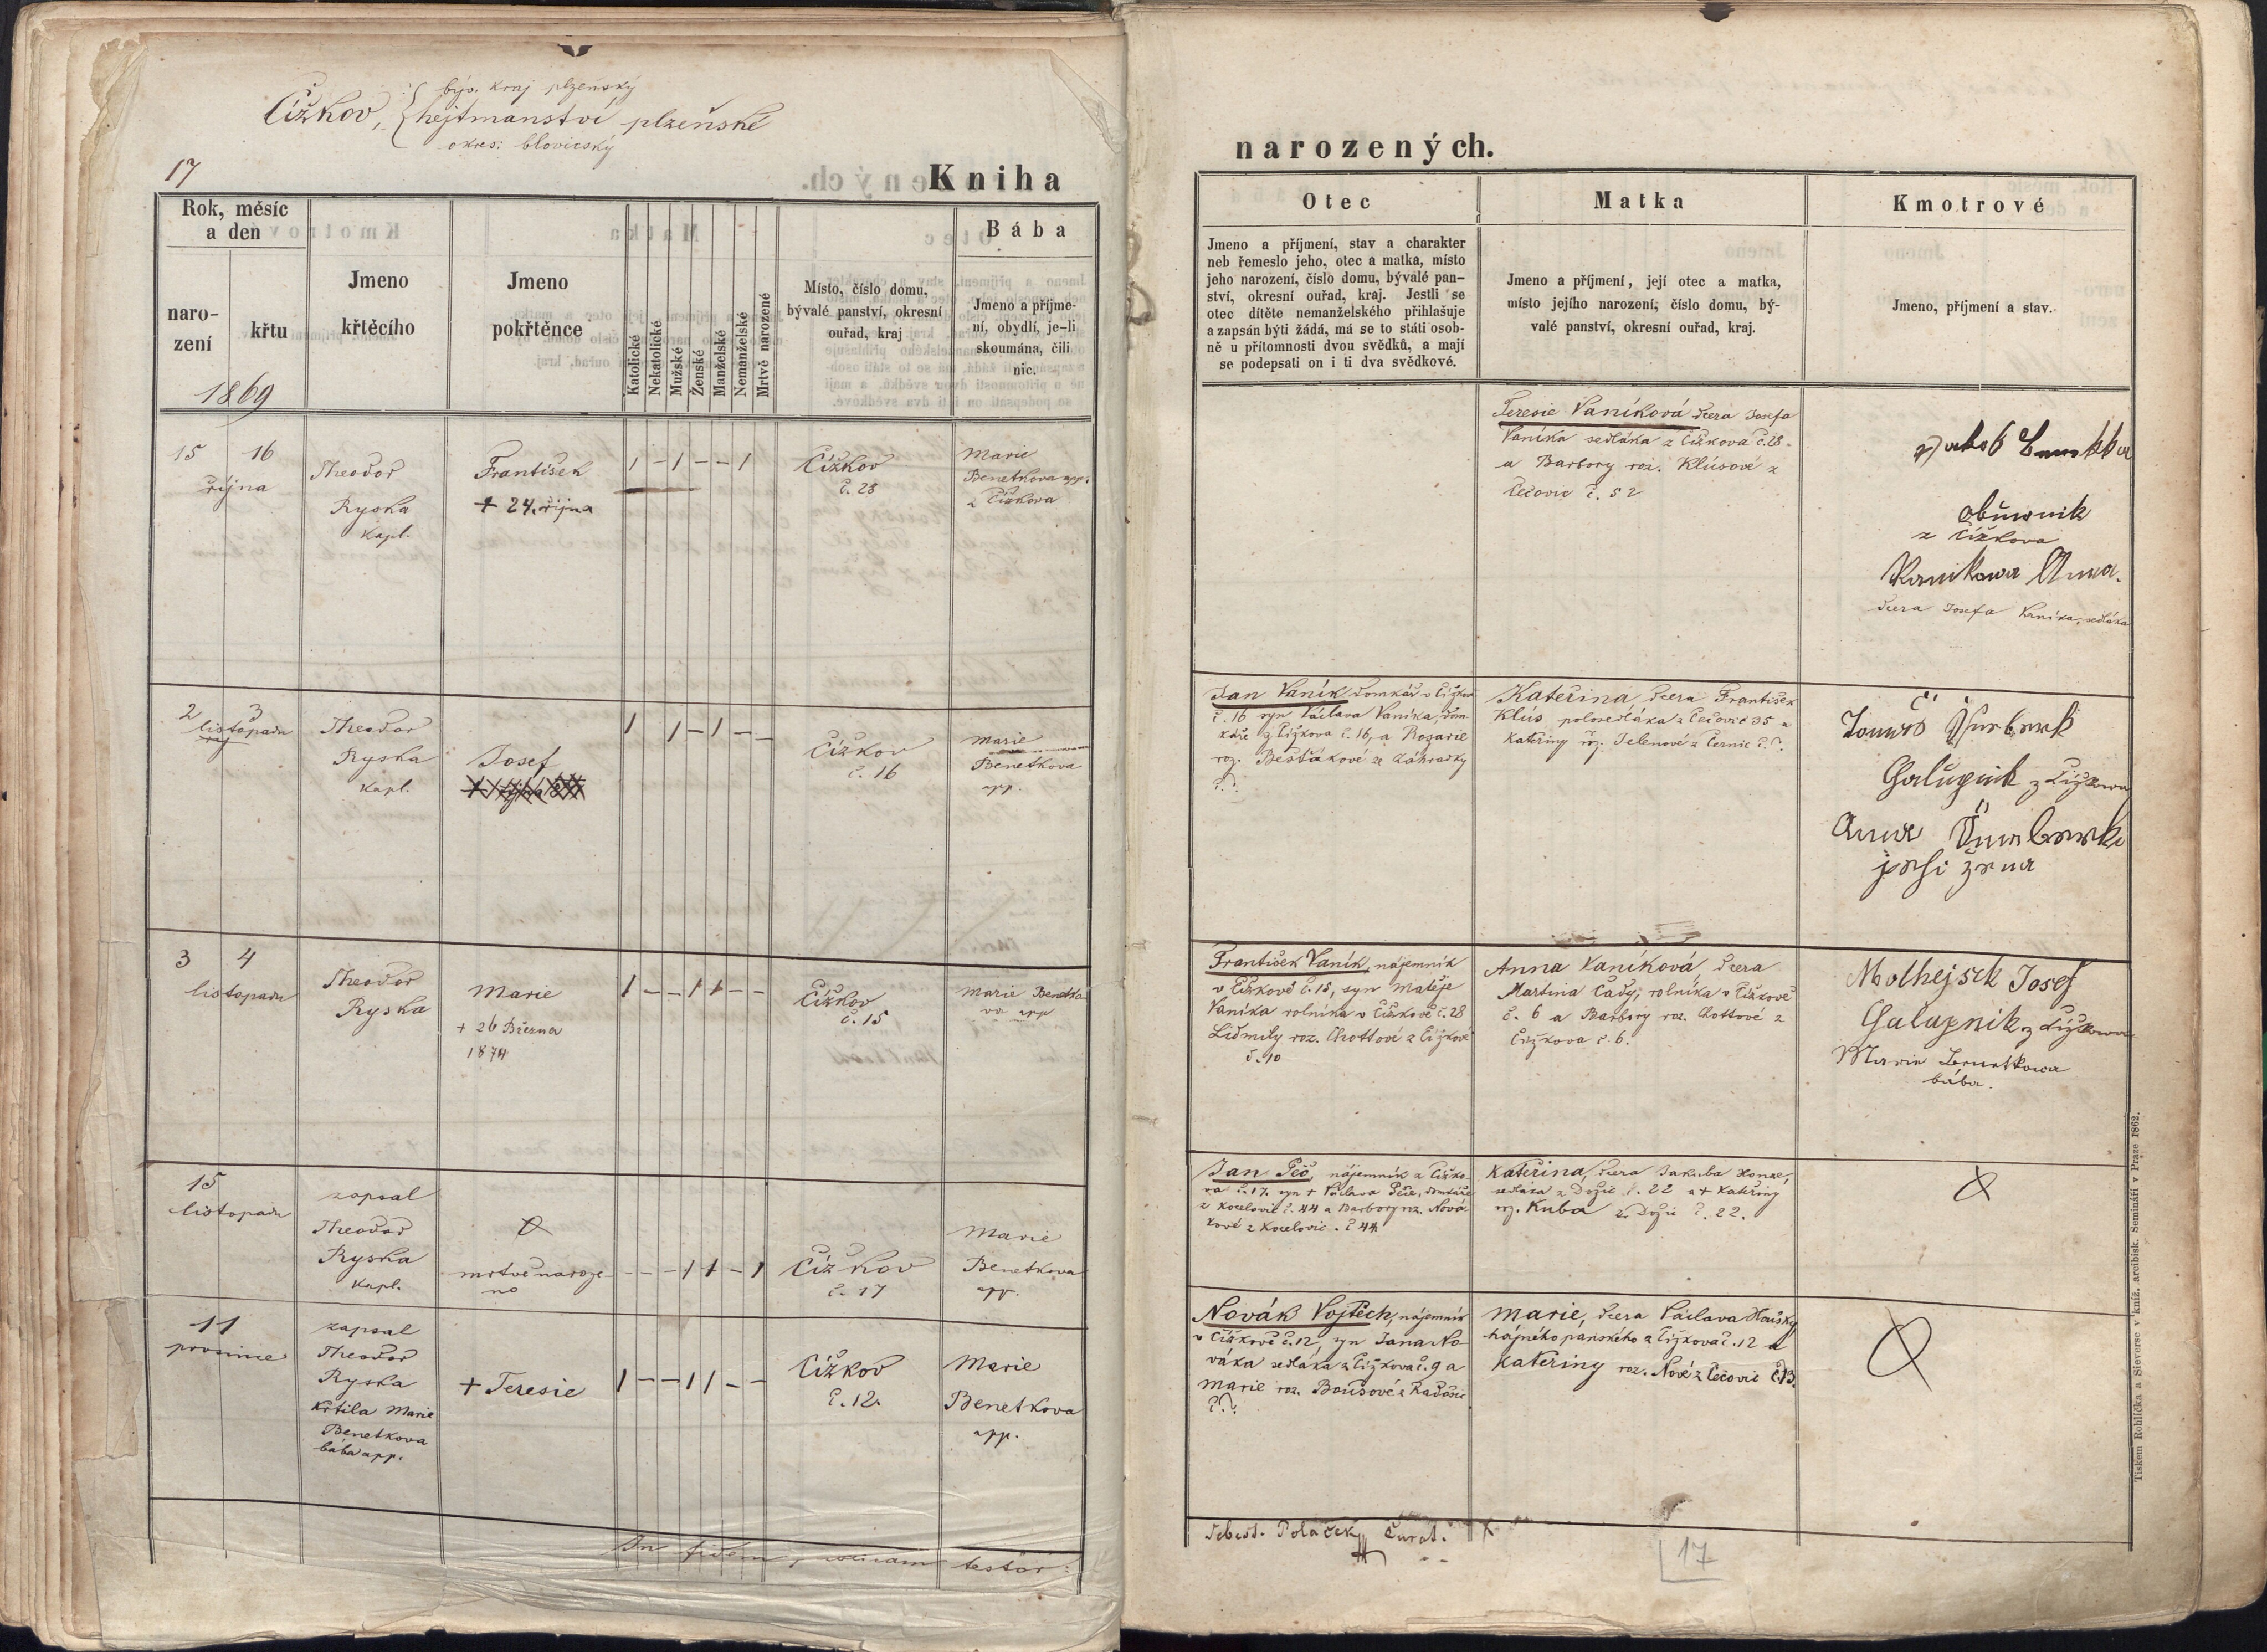 býv. kraj plzeňský
Čížkov, hejtmanství plzeňské
okres: blovický
17
Kniha
Rok, měsíc
a den
naro-
zení
křtu
1869
Jmeno
křtěcího
Jmeno
pokřtěnce
Katolické
Nekatolické
Mužské
Ženské
Manželské
Nemanželské
Mrtvě narozené
Místo, číslo domu,
bývalé panství, okresní
ouřad, kraj
Bába
Jmeno a příjme-
ní, obydlí, je-li
skoumána, čili
nic.
15 16
října
Theodor
Ryska
kapl.
František
+ 24. října
1 – 1 – – 1
Čížkov
č. 28
Marie
Benetkova app.
z Čížkova
2 3
listopadu
Theodor
Ryska
kapl.
Josef
1 1 – 1 – –
Čížkov
č. 16
Marie
Benetkova
app.
3 4
listopadu
Theodor
Ryska
Marie
+ 26 Března
1874
1 – – 1 1 – –
Čížkov
č. 15
Marie Benetko-
va app
15
listopadu
zapsal
Theodor
Ryska
kapl.
mrtvě naroze-
no
– – – 1 1 – 1
Čížkov
č. 17
Marie
Benetkova
app.
11
prosince
zapsal
Theodor
Ryska
křtila Marie
Benetkova
bába app.
+ Teresie
1 – – 1 1 – –
Čížkov
č. 12.
Marie
Benetkova
app.
In fidem testor:
narozených.
Otec
Jmeno a příjmení, stav a charakter
neb řemeslo jeho, otec a matka, místo
jeho narození, číslo domu, bývalé pan-
ství, okresní ouřad, kraj. Jestli se
otec dítěte nemanželského přihlašuje
a zapsán býti žádá, má se to státi osob-
ně u přítomnosti dvou svědků, a mají
se podepsati on i ti dva svědkové.
Matka
Jmeno a příjmení, její otec a matka,
místo jejího narození, číslo domu, bý-
valé panství, okresní ouřad, kraj.
Kmotrové
Jmeno, příjmení a stav.
Teresie Vaníková dcera Josefa
Vaníka sedláka z Čížkova č. 28
a Barbory roz. Klúsové z
Čečovic č. 52
Jakob Benetka
obuwnik
z Čížkova
Wanikowa Anna.
dcera Josefa Vaníka, sedláka
Jan Vaník domkář v Čížkově
č. 16 syn Václava Vaníka, dom-
káře z Čížkova č. 16, a Rozarie
roz. Bešťákové ze Záhradky
č.?.
Kateřina, dcera František
Klús polosedláka z Čečovic 35 a
Kateřiny roz. Jelenové z Černic č.?.
Tomáš
Chalupnik z Čížkowa
Anna
jeho žena
František Vaník, nájemník
v Čížkově č. 15, syn Matěje
Vaníka rolníka v Čížkově č. 28
Lidmily roz. Chottové z Čížkova
č. 10
Anna Vaníková dcera
Martina Čady, rolníka v Čížkově
č. 6 a Barbory roz. Chottové z
Čížkova č. 6.
Molhejsek Josef
Chalupnik z Čížkowa
Maria Benetkowa
bába.
Jan Peč, nájemník z Čížko-
va č. 17. syn + Václava Peče, domkáře
z Kocelovic č. 44 a Barbory roz. Nová-
kové z Kocelovic. č 44.
Kateřina, dcera Jakuba Honze,
sedláka z Dožic č. 22 a + Kateřiny
roz. Kuba z Dožic č. 22.
Novák Vojtěch, nájemník
v Čížkově č. 12, syn Jana No-
váka sedláka z Čížkova č. 9 a
Marie roz. Boušové z Radošic
č.?.
Marie, dcera Václava Houšky
hájného panského z Čížkova č. 12 a
Kateřiny roz. Nové z Čečovic č. 13.
Sebest. Poláček, Curat.
17
Tiskem Rohlíčka a Sieverse v kníž. arcibisk. Semináři v Praze 1862.